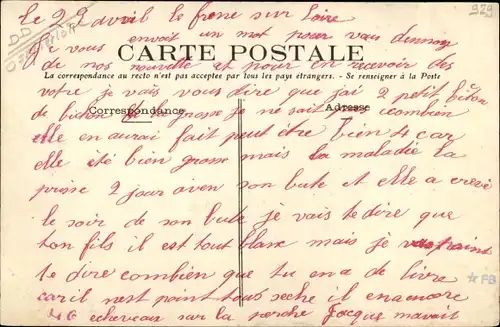 le 22 avril le frene sur Loire
je vous envoit un mot pour vous donner
CARTE POSTALE
de nos nouvelle et pour en recevoir des
La correspondance au recto n'est pas acceptée par tous les pays étrangers. - Se renseigner à la Poste
votre je vais vous dire que j'ai 2 petit
Correspondance
Adresse
de grosse je ne sait combien
elle en aurai fait peut être bien 4 car
elle été bien grosse mais la maladie la
prise 2 jour aven son bute et elle a crevé
le soir de son bute je vais te dire que
ton fils il est tout blanc mais je
te dire combien que tu en a de livre
car il n'est point tous seche il en encore
46 echeveau sur la perche Jacques m'avait
929
FB